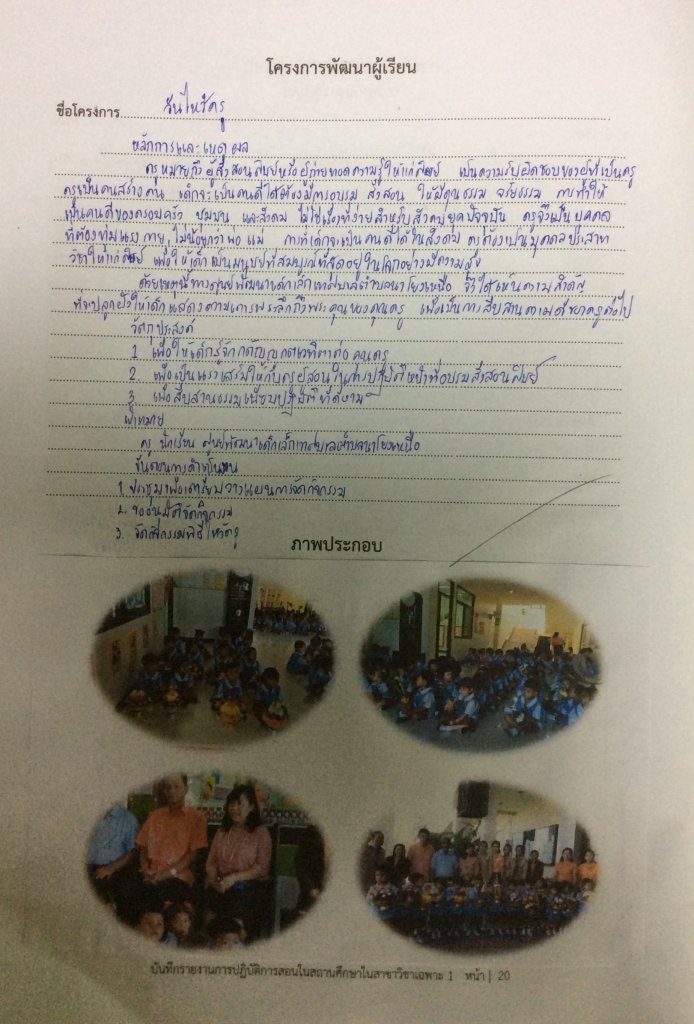 โครงการพัฒนาผู้เรียน
ชื่อโครงการ วันไหว้ครู
หลักการและเหตุผล
ครูหมายถึงผู้สั่งสอนศิษย์หรือผู้ถ่ายทอดความรู้ให้แก่ศิษย์ เป็นความรับผิดชอบของผู้ที่เป็นครู
ครูเป็นคนสร้างคน เด็กจะเป็นคนดีได้ต้องมีการอบรม สั่งสอน ให้มีคุณธรรม จริยธรรม การทำให้
เป็นคนดีของครอบครัว ชุมชน และสังคม ไม่ใช่เรื่องที่ง่ายสำหรับสังคมยุคปัจจุบัน ครูจึงเป็น บุคคล
ที่ต้องทุ่มแรงกาย ไม่น้อยกว่าพ่อ แม่ การที่เด็กจะเป็นคนดีได้ในสังคม ครูต้องเป็นบุคคลประสาท
วิชาให้แก่ศิษย์ เพื่อให้เด็กเป็นมนุษย์ที่สมบูรณ์ที่สุดอยู่ในโลกอย่างมีความสุข
ด้วยเหตุนี้ทางศูนย์พัฒนาเด็กเล็กเทศบาลตำบลนาโยงเหนือ จึงได้เห็นความสำคัญ
ที่จะปลูกฝังให้เด็กแสดงความเคารพระลึกถึงพระคุณของคุณครู เพื่อเป็นการสืบสาน
วัตถุประสงค์
1. เพื่อให้เด็กรู้จักกตัญญูกตเวทิตาต่อคุณครู
2. เพื่อเป็นแรงเสริมให้กับครูผู้สอนในการปฏิบัติหน้าที่อบรมสั่งสอนศิษย์
3. เพื่อสืบสานธรรมเนียมปฏิบัติที่ดีงาม
เป้าหมาย
ครู นักเรียน ศูนย์พัฒนาเด็กเล็กเทศบาลตำบลนาโยงเหนือ
ขั้นตอนการดำเนินงาน
1. ประชุมเพื่อเตรียมวางแผนการจัดกิจกรรม
2. ขออนุมัติจัดกิจกรรม
3. จัดกิจกรรมพิธีไหว้ครู
ภาพประกอบ
บันทึกรายงานการปฏิบัติการสอนในสถานศึกษาในสาขาวิชาเฉพาะ 1 หน้า | 20